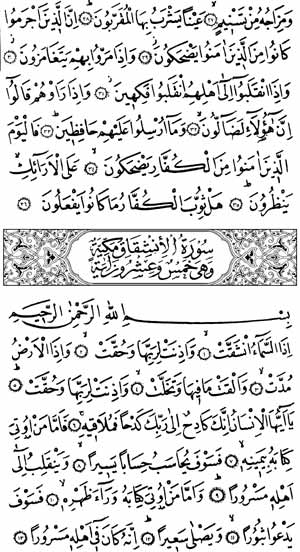 وَمِزَاجُهُ مِنْ تَسْنِيمٍ ﴿٢٧﴾ عَيْنًا يَشْرَبُ بِهَا الْمُقَرَّبُونَ ﴿٢٨﴾ إِنَّ الَّذِينَ أَجْرَمُوا
كَانُوا مِنَ الَّذِينَ آمَنُوا يَضْحَكُونَ ﴿٢٩﴾ وَإِذَا مَرُّوا بِهِمْ يَتَغَامَزُونَ ﴿٣٠﴾
وَإِذَا انْقَلَبُوا إِلَى أَهْلِهِمُ انْقَلَبُوا فَكِهِينَ ﴿٣١﴾ وَإِذَا رَأَوْهُمْ قَالُوا
إِنَّ هَؤُلَاءِ لَضَالُّونَ ﴿٣٢﴾ وَمَا أُرْسِلُوا عَلَيْهِمْ حَافِظِينَ ﴿٣٣﴾ فَالْيَوْمَ
الَّذِينَ آمَنُوا مِنَ الْكُفَّارِ يَضْحَكُونَ ﴿٣٤﴾ عَلَى الْأَرَائِكِ
يَنْظُرُونَ ﴿٣٥﴾ هَلْ ثُوِّبَ الْكُفَّارُ مَا كَانُوا يَفْعَلُونَ ﴿٣٦﴾
سُورَةُ الْإِنْشِقَاقِ مَكِّيَّةٌ
وَهِيَ خَمْسٌ وَعِشْرُونَ آيَةً
بِسْمِ اللهِ الرَّحْمَنِ الرَّحِيمِ
إِذَا السَّمَاءُ انْشَقَّتْ ﴿١﴾ وَأَذِنَتْ لِرَبِّهَا وَحُقَّتْ ﴿٢﴾ وَإِذَا الْأَرْضُ
مُدَّتْ ﴿٣﴾ وَأَلْقَتْ مَا فِيهَا وَتَخَلَّتْ ﴿٤﴾ وَأَذِنَتْ لِرَبِّهَا وَحُقَّتْ ﴿٥﴾
يَا أَيُّهَا الْإِنْسَانُ إِنَّكَ كَادِحٌ إِلَى رَبِّكَ كَدْحًا فَمُلَاقِيهِ ﴿٦﴾ فَأَمَّا مَنْ أُوتِيَ
كِتَابَهُ بِيَمِينِهِ ﴿٧﴾ فَسَوْفَ يُحَاسَبُ حِسَابًا يَسِيرًا ﴿٨﴾ وَيَنْقَلِبُ إِلَى
أَهْلِهِ مَسْرُورًا ﴿٩﴾ وَأَمَّا مَنْ أُوتِيَ كِتَابَهُ وَرَاءَ ظَهْرِهِ ﴿١٠﴾ فَسَوْفَ
يَدْعُو ثُبُورًا ﴿١١﴾ وَيَصْلَى سَعِيرًا ﴿١٢﴾ إِنَّهُ كَانَ فِي أَهْلِهِ مَسْرُورًا ﴿١٣﴾